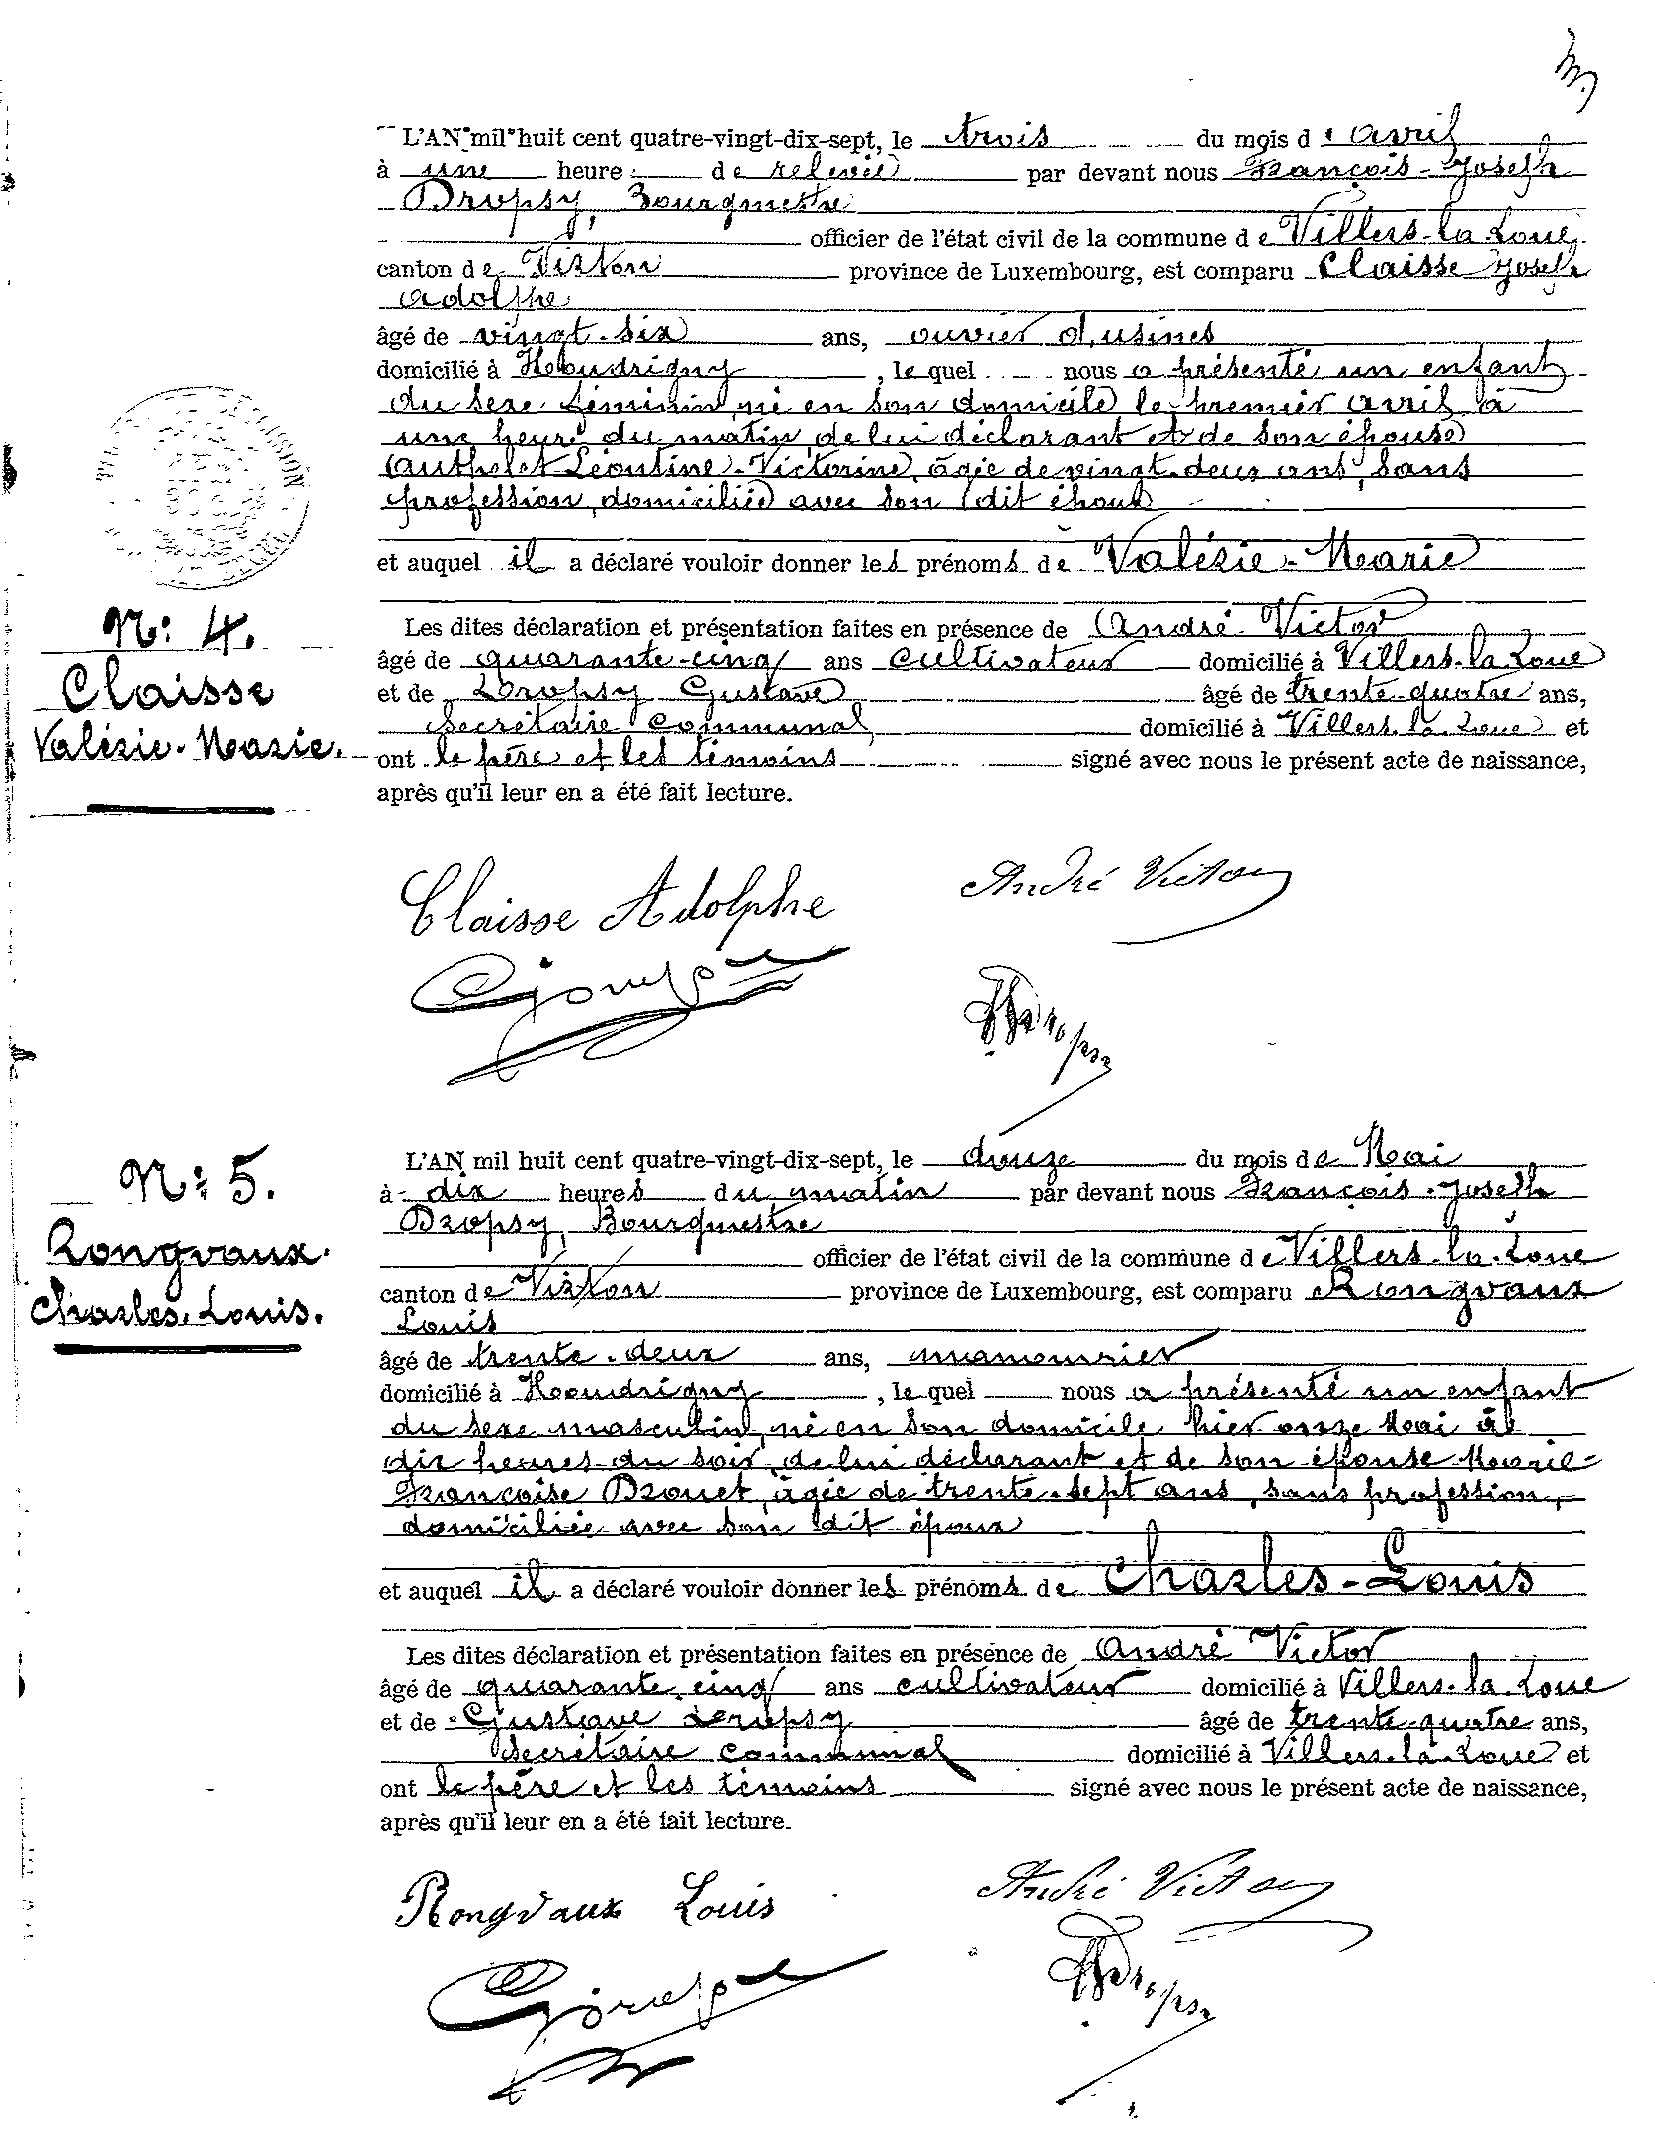 L'AN mil huit cent quatre-vingt-dix-sept, le trois du mois d'avril
à une heure de relevée par devant nous François-Joseph
Dropsy, Bourgmestre
officier de l'état civil de la commune de Villers-la-Loue
canton de Virton province de Luxembourg, est comparu Claisse Joseph
Adolphe
âgé de vingt-six ans, ouvrier d'usines
domicilié à Houdrigny, le quel nous a présenté un enfant
du sexe féminin, né en son domicile le premier avril à
une heure du matin, de lui déclarant et de son épouse
Authelet Léontine-Victorine, âgée de vingt-deux ans, sans
profession, domiciliée avec son dit époux
et auquel il a déclaré vouloir donner les prénoms de Valérie-Marie
N: 4.
Claisse
Valérie-Marie.
Les dites déclaration et présentation faites en présence de André Victor
âgé de quarante-cinq ans cultivateur domicilié à Villers-la-Loue
et de Dropsy Gustave âgé de trente-quatre ans,
secrétaire communal domicilié à Villers-la-Loue et
ont le père et les témoins signé avec nous le présent acte de naissance,
après qu'il leur en a été fait lecture.
Claisse Adolphe André Victor
Dropsy
N: 5.
Rongvaux
Charles-Louis.
L'AN mil huit cent quatre-vingt-dix-sept, le douze du mois de Mai
à dix heures du matin par devant nous François-Joseph
Dropsy, Bourgmestre
officier de l'état civil de la commune de Villers-la-Loue
canton de Virton province de Luxembourg, est comparu Rongvaux
Louis
âgé de trente-deux ans, manouvrier
domicilié à Houdrigny, le quel nous a présenté un enfant
du sexe masculin, né en son domicile hier onze Mai à
dix heures du soir, de lui déclarant et de son épouse Marie-
Françoise Drouet, âgée de trente-sept ans, sans profession,
domiciliée avec son dit époux
et auquel il a déclaré vouloir donner les prénoms de Charles-Louis
Les dites déclaration et présentation faites en présence de André Victor
âgé de quarante-cinq ans cultivateur domicilié à Villers-la-Loue
et de Gustave Dropsy âgé de trente-quatre ans,
secrétaire communal domicilié à Villers-la-Loue et
ont le père et les témoins signé avec nous le présent acte de naissance,
après qu'il leur en a été fait lecture.
Rongvaux Louis André Victor
Dropsy